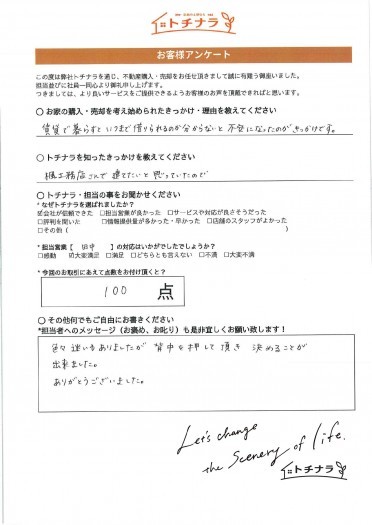 トチナラ
お客様アンケート
この度は弊社トチナラを通じ、不動産購入・売却をお任せ頂きまして誠に有難う御座いました。
担当並びに社員一同心より御礼申し上げます。
つきましては、より良いサービスをご提供できるようお客様のお声を頂戴できればと思います。
〇 お家の購入・売却を考え始められたきっかけ・理由を教えてください
賃貸で暮らすといつまで借りられるのか分からないと不安になったのがきっかけです。
〇 トチナラを知ったきっかけを教えてください
楓工務店さんで建てたいと思っていたので
〇 トチナラ・担当の事をお聞かせください
*なぜトチナラを選ばれましたか?
☑会社が信頼できた □担当営業が良かった □サービスや対応が良さそうだった
□評判を聞いた □情報提供量が多かった・早かった □店舗のスタッフがよかった
□その他( )
*担当営業【 田中 】の対応はいかがでしたでしょうか?
□感動 ☑大変満足 □満足 □どちらとも言えない □不満 □大変不満
*今回のお取引にあえて点数をお付け頂くと?
100 点
〇 その他何でもご自由にお書きください
*担当者へのメッセージ(お褒め、お叱り)も是非宜しくお願い致します!
色々迷いもありましたが 背中を押して頂き 決めることが
出来ました。
ありがとうございました。
Let's change
the Scenery of life.
トチナラ